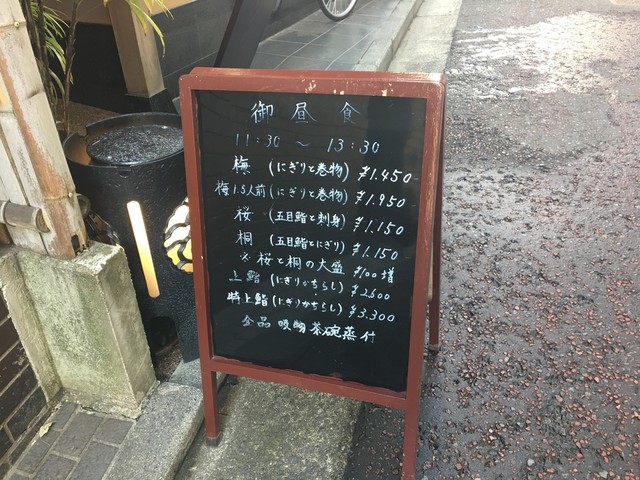 御昼食
11:30 ～ 13:30
梅 (にぎりと巻物) ¥1.450
梅1.5人前 (にぎりと巻物) ¥1.950
桜 (五目鮨と刺身) ¥1.150
桐 (五目鮨とにぎり) ¥1.150
※ 桜と桐の大盛 ¥100増
上鮨 (にぎりかちらし) ¥2.600
特上鮨 (にぎりかちらし) ¥3.300
全品 吸物 茶碗蒸付